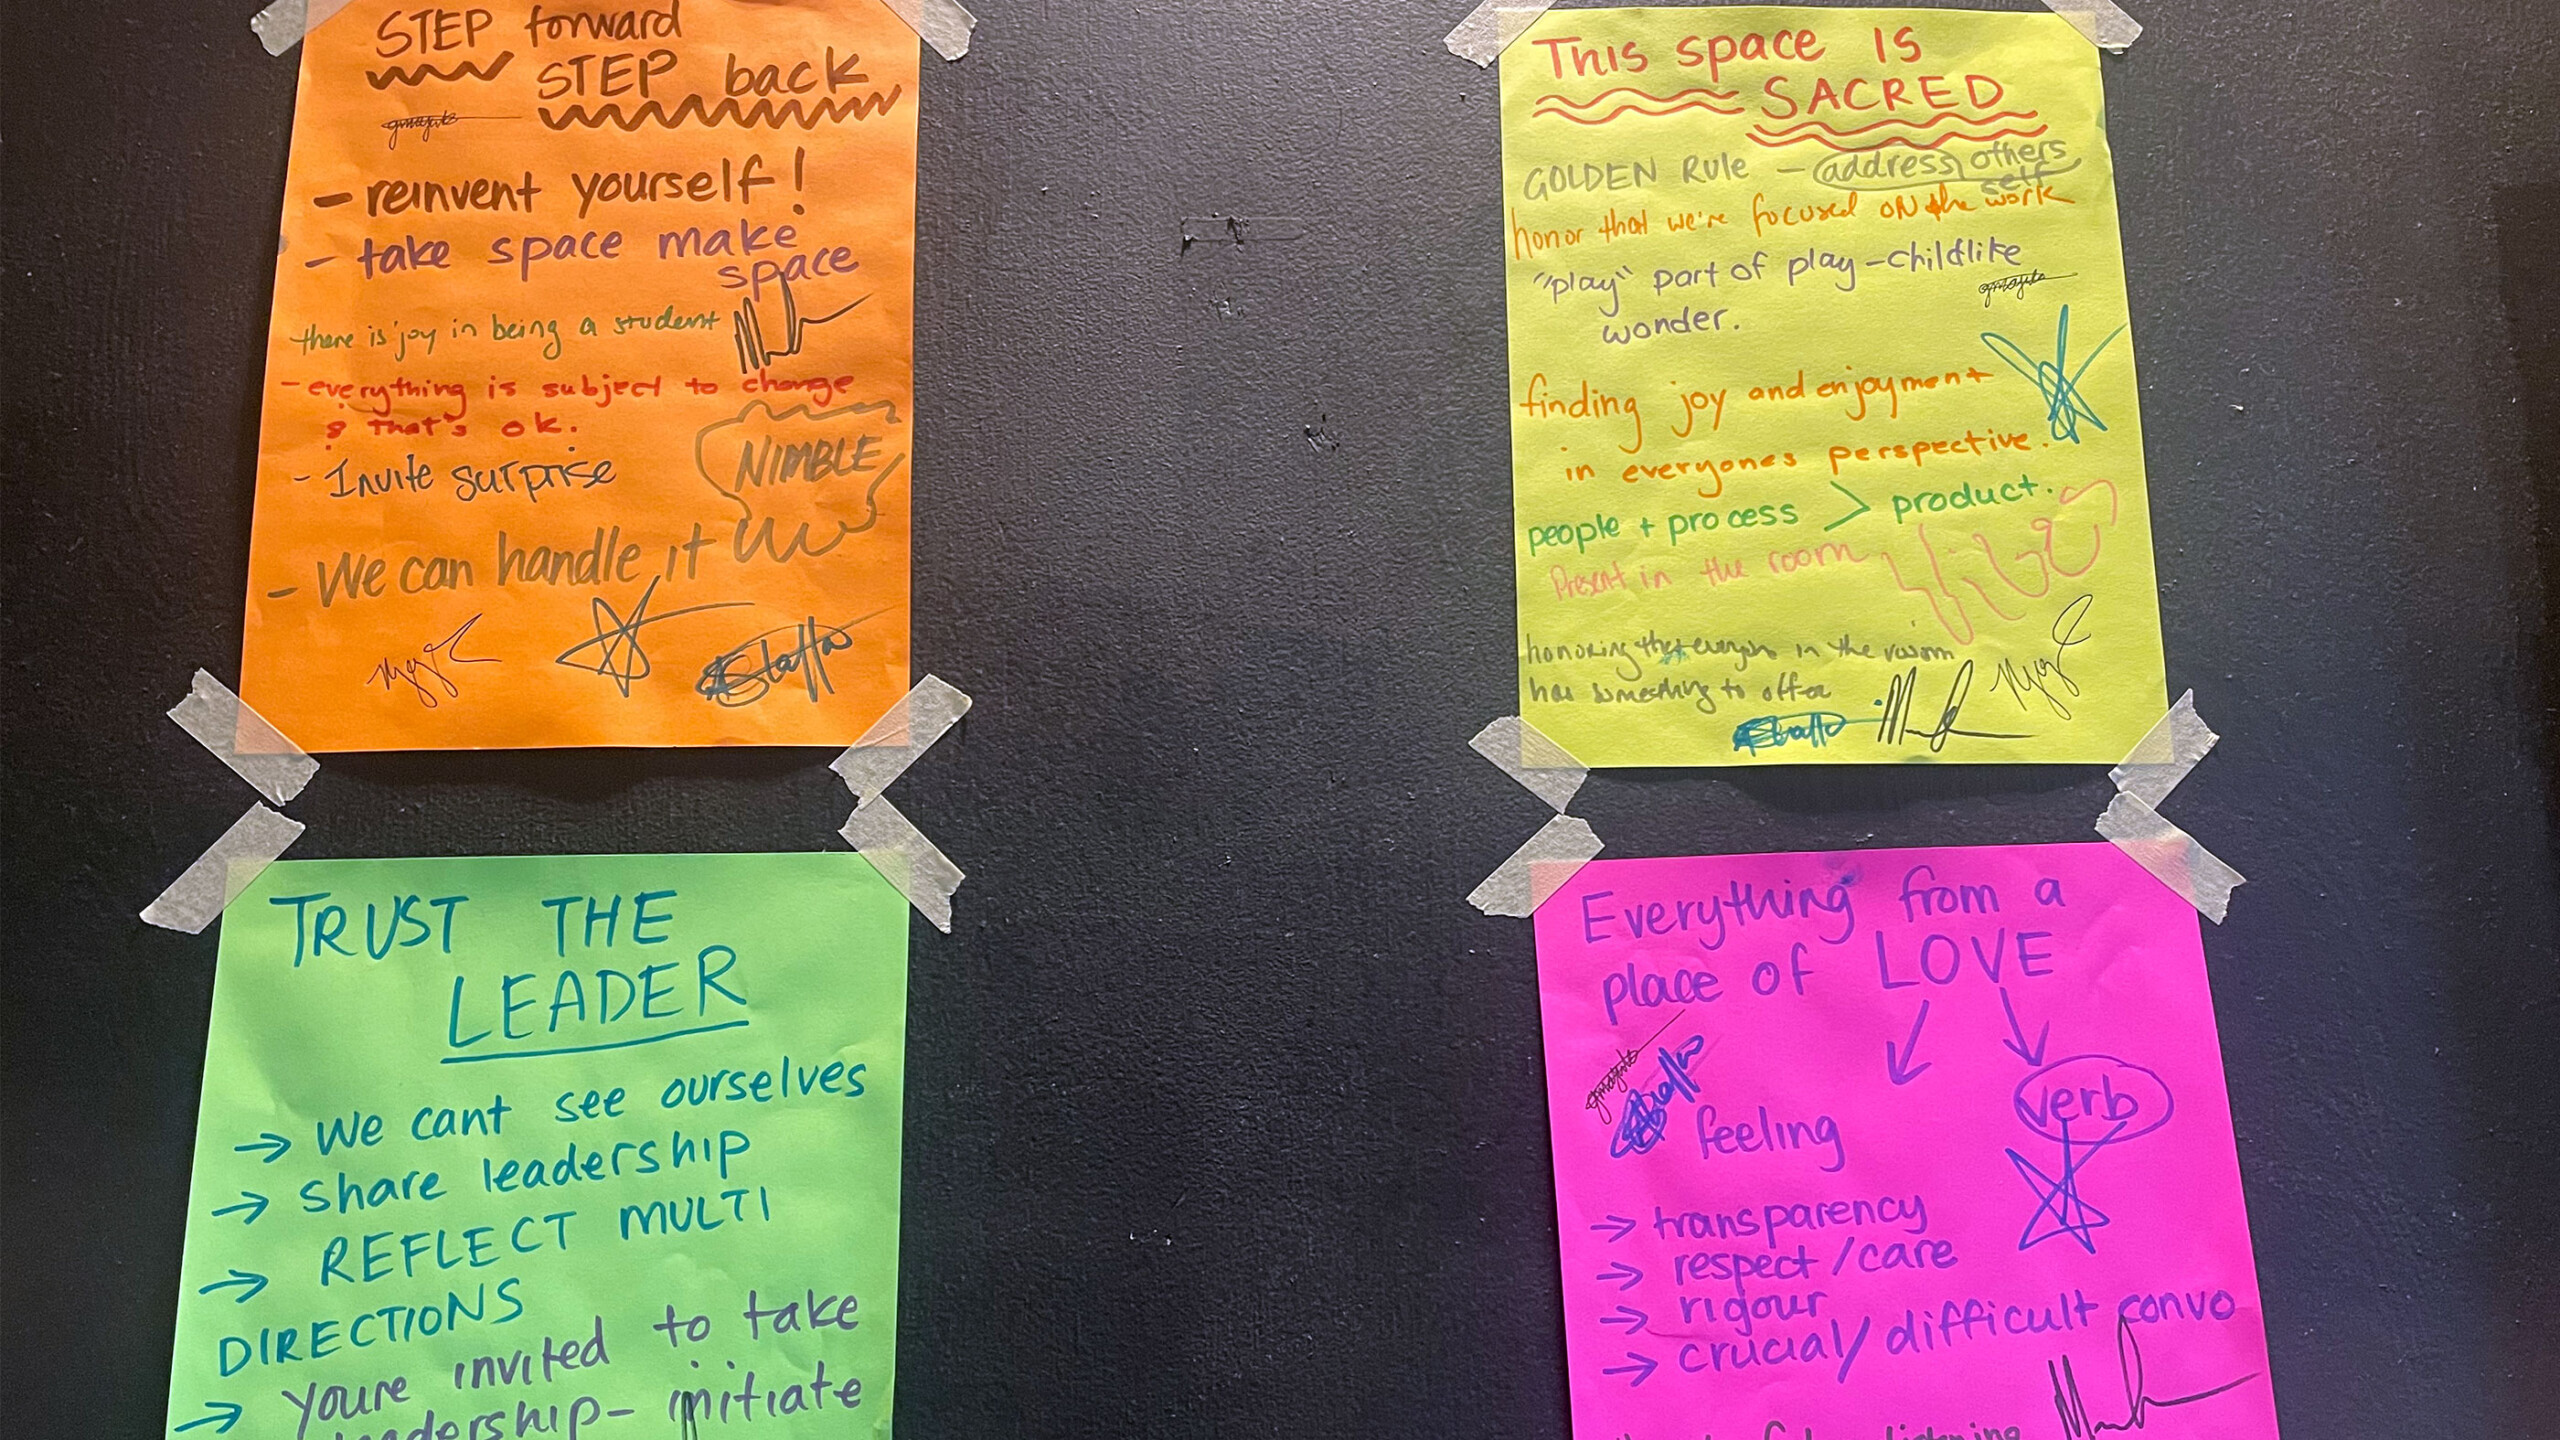 STEP forward
STEP back
- reinvent yourself!
- take space make
space
there is joy in being a student
- everything is subject to change
& that's ok.
- Invite surprise
NIMBLE
- We can handle it
This space is
SACRED
GOLDEN RULE - address others
self
honor that we're focused on the work
"play" part of play - childlike
wonder.
finding joy and enjoyment
in everyones perspective.
people + process > product.
Present in the room
honoring that everyone in the room
has something to offer
TRUST THE
LEADER
→ We cant see ourselves
→ Share leadership
→ REFLECT MULTI
DIRECTIONS
→ youre invited to take
leadership - initiate
Everything from a
place of LOVE
feeling
verb
→ transparency
→ respect/care
→ rigour
→ crucial/difficult convo
listening